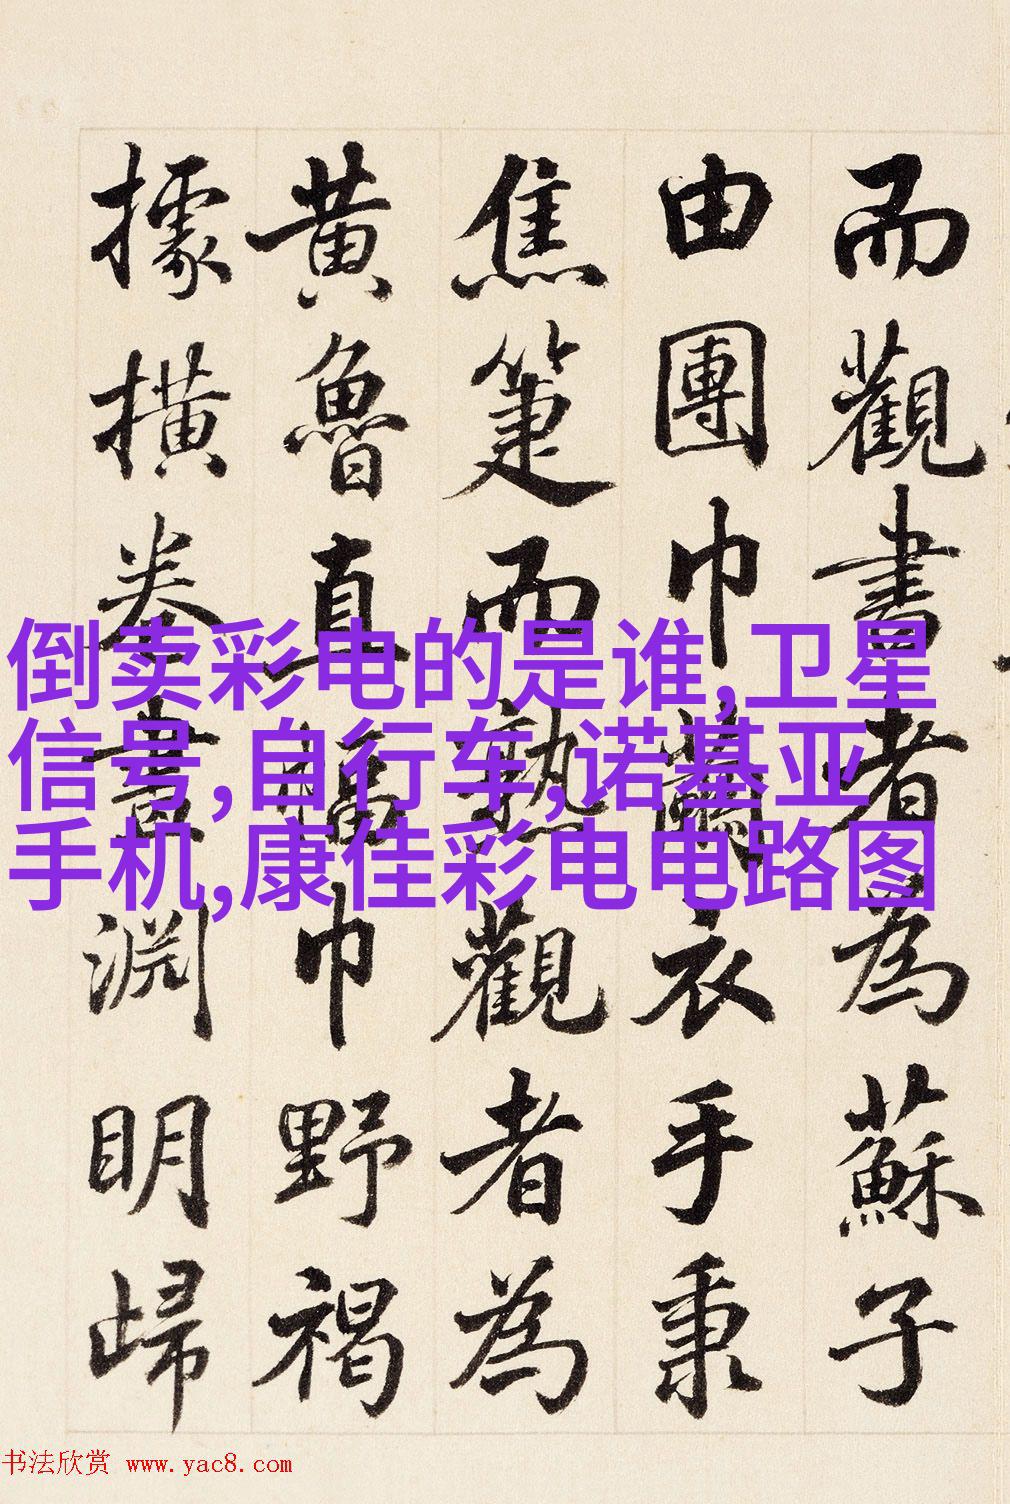 而觀書者為蘇子
由團巾繭衣手秉
焦箑而熟觀者為
黃魯直幅巾野褐
據橫卷畫淵明歸
倒卖彩电的是谁,卫星
信号,自行车,诺基亚
手机,康佳彩电电路图
书法欣赏 www.yac8.com